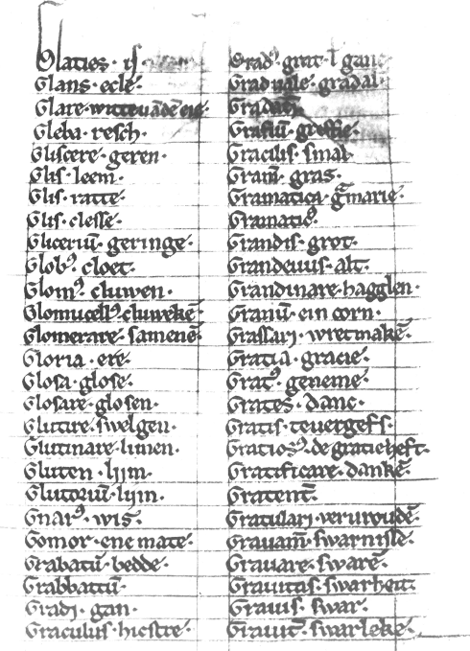 Glacies · ijs
Glans · ecle·
Glare· wittevādēeie·
Gleba · resch·
Gliscere · geren·
Glis · leem·
Glis · ratte·
Glis · clesse·
Gliceriū · geringe·
Globꝰ · cloet·
Glomꝰ · cluwen·
Glomucellꝰ · cluwekē·
Glomerare · samenē·
Gloria · ere·
Glosa · glose·
Glosare · glosen·
Glutire · swelgen·
Glutinare · limen·
Gluten · lijm·
Glutoriū · lijm·
Gnarꝰ · wis·
Gomor · ene mate·
Grabatū · bedde·
Grabbattū·
Gradi · gan·
Graculus · hicstre·
Gradꝰ · grat·
Graduale · gradal·
Grafiū · greffie·
Gracilis · smal·
Gramē · gras·
Gramatica · g̃marie·
Gramaticꝰ·
Grandis · grot·
Grandevus · alt·
Grandinare · hagghen·
Granū · ein corn·
Grassari · wretmakē·
Gratia · gracie·
Gratꝰ · geneme·
Grates · danc·
Gratis · tevergefs·
Gratiosꝰ · de gratie heft·
Gratificare · dankē·
Gratent̄·
Gratulari · vervroudē·
Gravam̄ · swarnisse·
Gravare · swarē·
Gravitas · swarheit·
Gravis · swar·
Gravit̄ · swarleke·